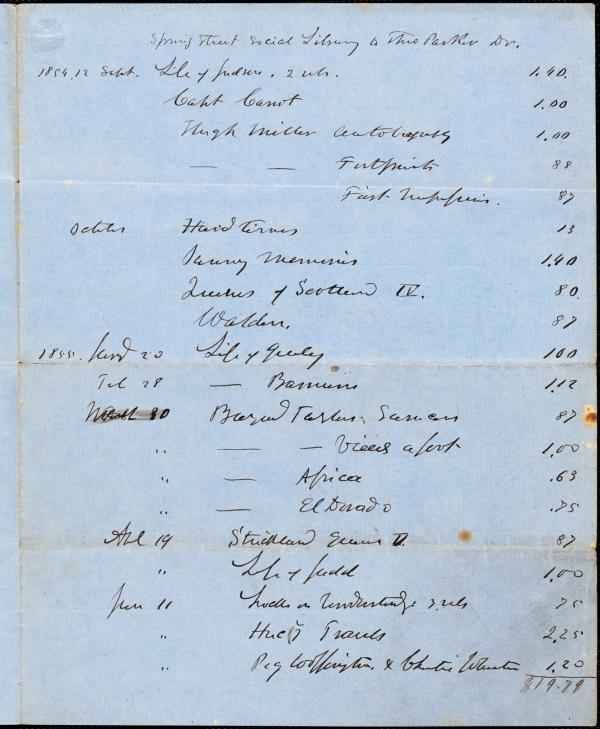 Spring Street Social Library to Theo Parker Dr.
1854. 12 Sept. Life of Judson. 2 vols. 1.40.
Capt Canot 1.00
Hugh Miller Autobiography 1.00
— — Footprints 88
First Impressions. 87
October Hard Times 13
Sunny Memories 1.40
Queens of Scotland IV. 80.
Walden. 87
1855. 20 Life of Greeley 100
Feb 28 — Barnum 1.12
30 Bayard Taylor, Saracens 87
" — — Views afoot 1.00
" — Africa .63
" — El Dorado .75
Apl 19 Strickland Queens V. 87
" Life of Judd 1.00
June 11 Locke on Understandg 2 vols 75
" Huc's Travels 2.25
" Peg Woffington & Christie Johnstone 1.20
$19.79